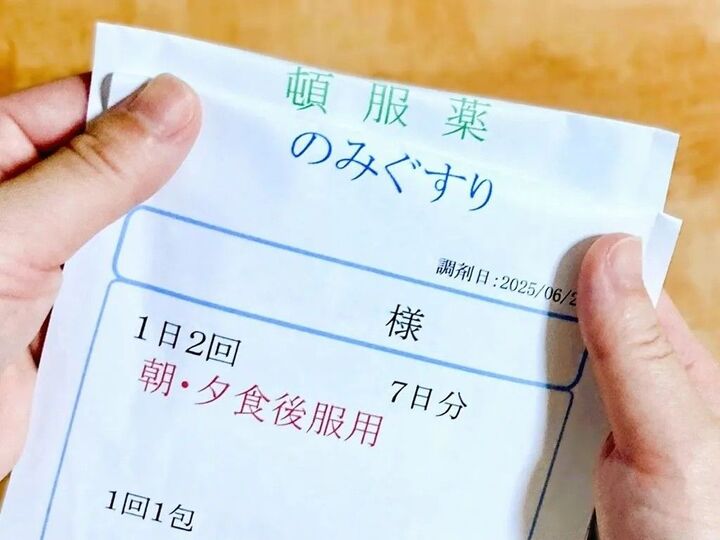 頓服薬
のみぐすり
調剤日:2025/06/2
様
1日2回
7日分
朝・夕食後服用
1回1包